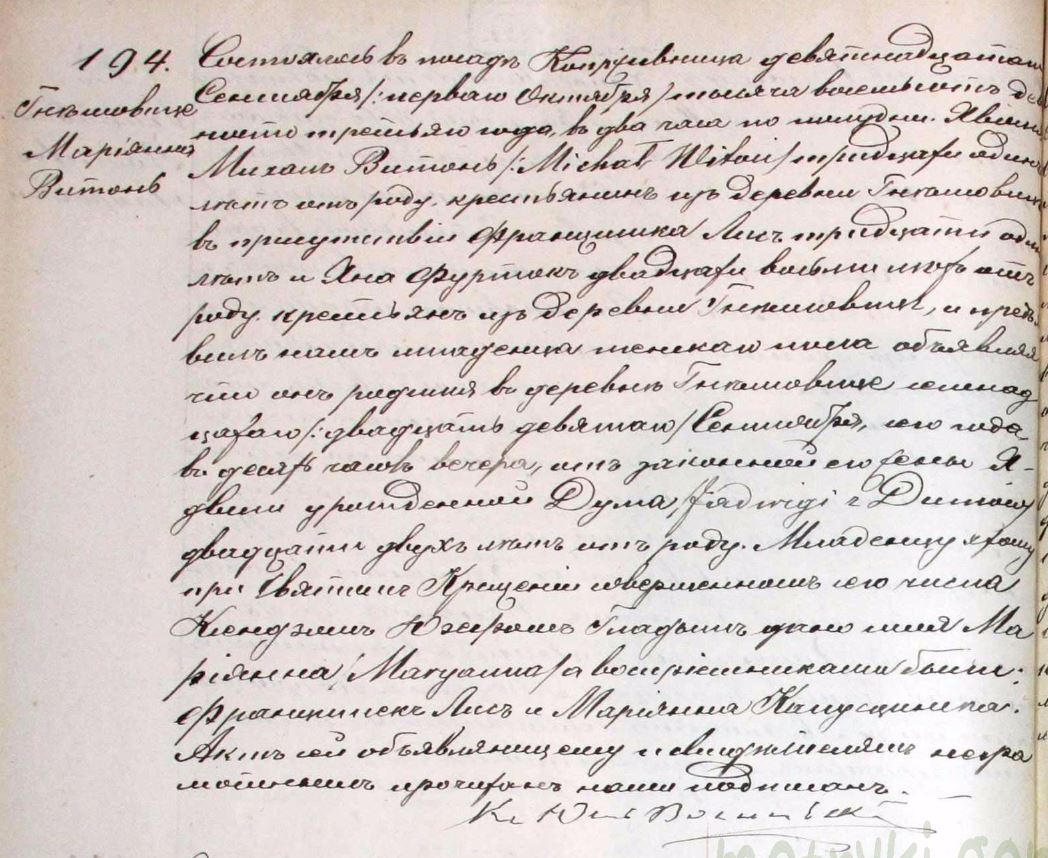 194.
Гнѣшовице
Маріянна
Витонь
Состоялось въ посадѣ Копрживница девятнадцатаго
Сентября /: перваго Октября / тысяча восемьсотъ девя
носто третьяго года, въ два часа по полудни. Явился
Михалъ Витонь /: Michał Witoń / тридцати одинъ
лѣтъ отъ роду, крестьянинъ изъ деревни
въ присутствіи Францишка Лисъ тридцати одинъ
лѣтъ и Яна Фуртокъ двадцати восьми лѣтъ отъ
роду крестьянъ изъ деревни и предъя
вилъ намъ младенца женскаго пола объявляя
что онъ родился въ деревнѣ Гнѣшовице семнад
цатаго /: двадцать девятаго / Сентября, сего года
въ десять часовъ вечера, отъ законной его жены Я-
двиги урожденной Дума, / Jadwigi z Dumów /
двадцати двухъ лѣтъ отъ роду. Младенцу этому
при Святомъ Крещеніи совершенномъ сего числа
Ксендзомъ Юзефомъ Гладышъ дано имя Ма
ріянна / Maryanna / а воспріемниками были:
Францишекъ Лисъ и Маріянна Капусцинска.
Актъ сей объявляющему и свидѣтелямъ негра
мотнымъ прочитанъ нами подписанъ.